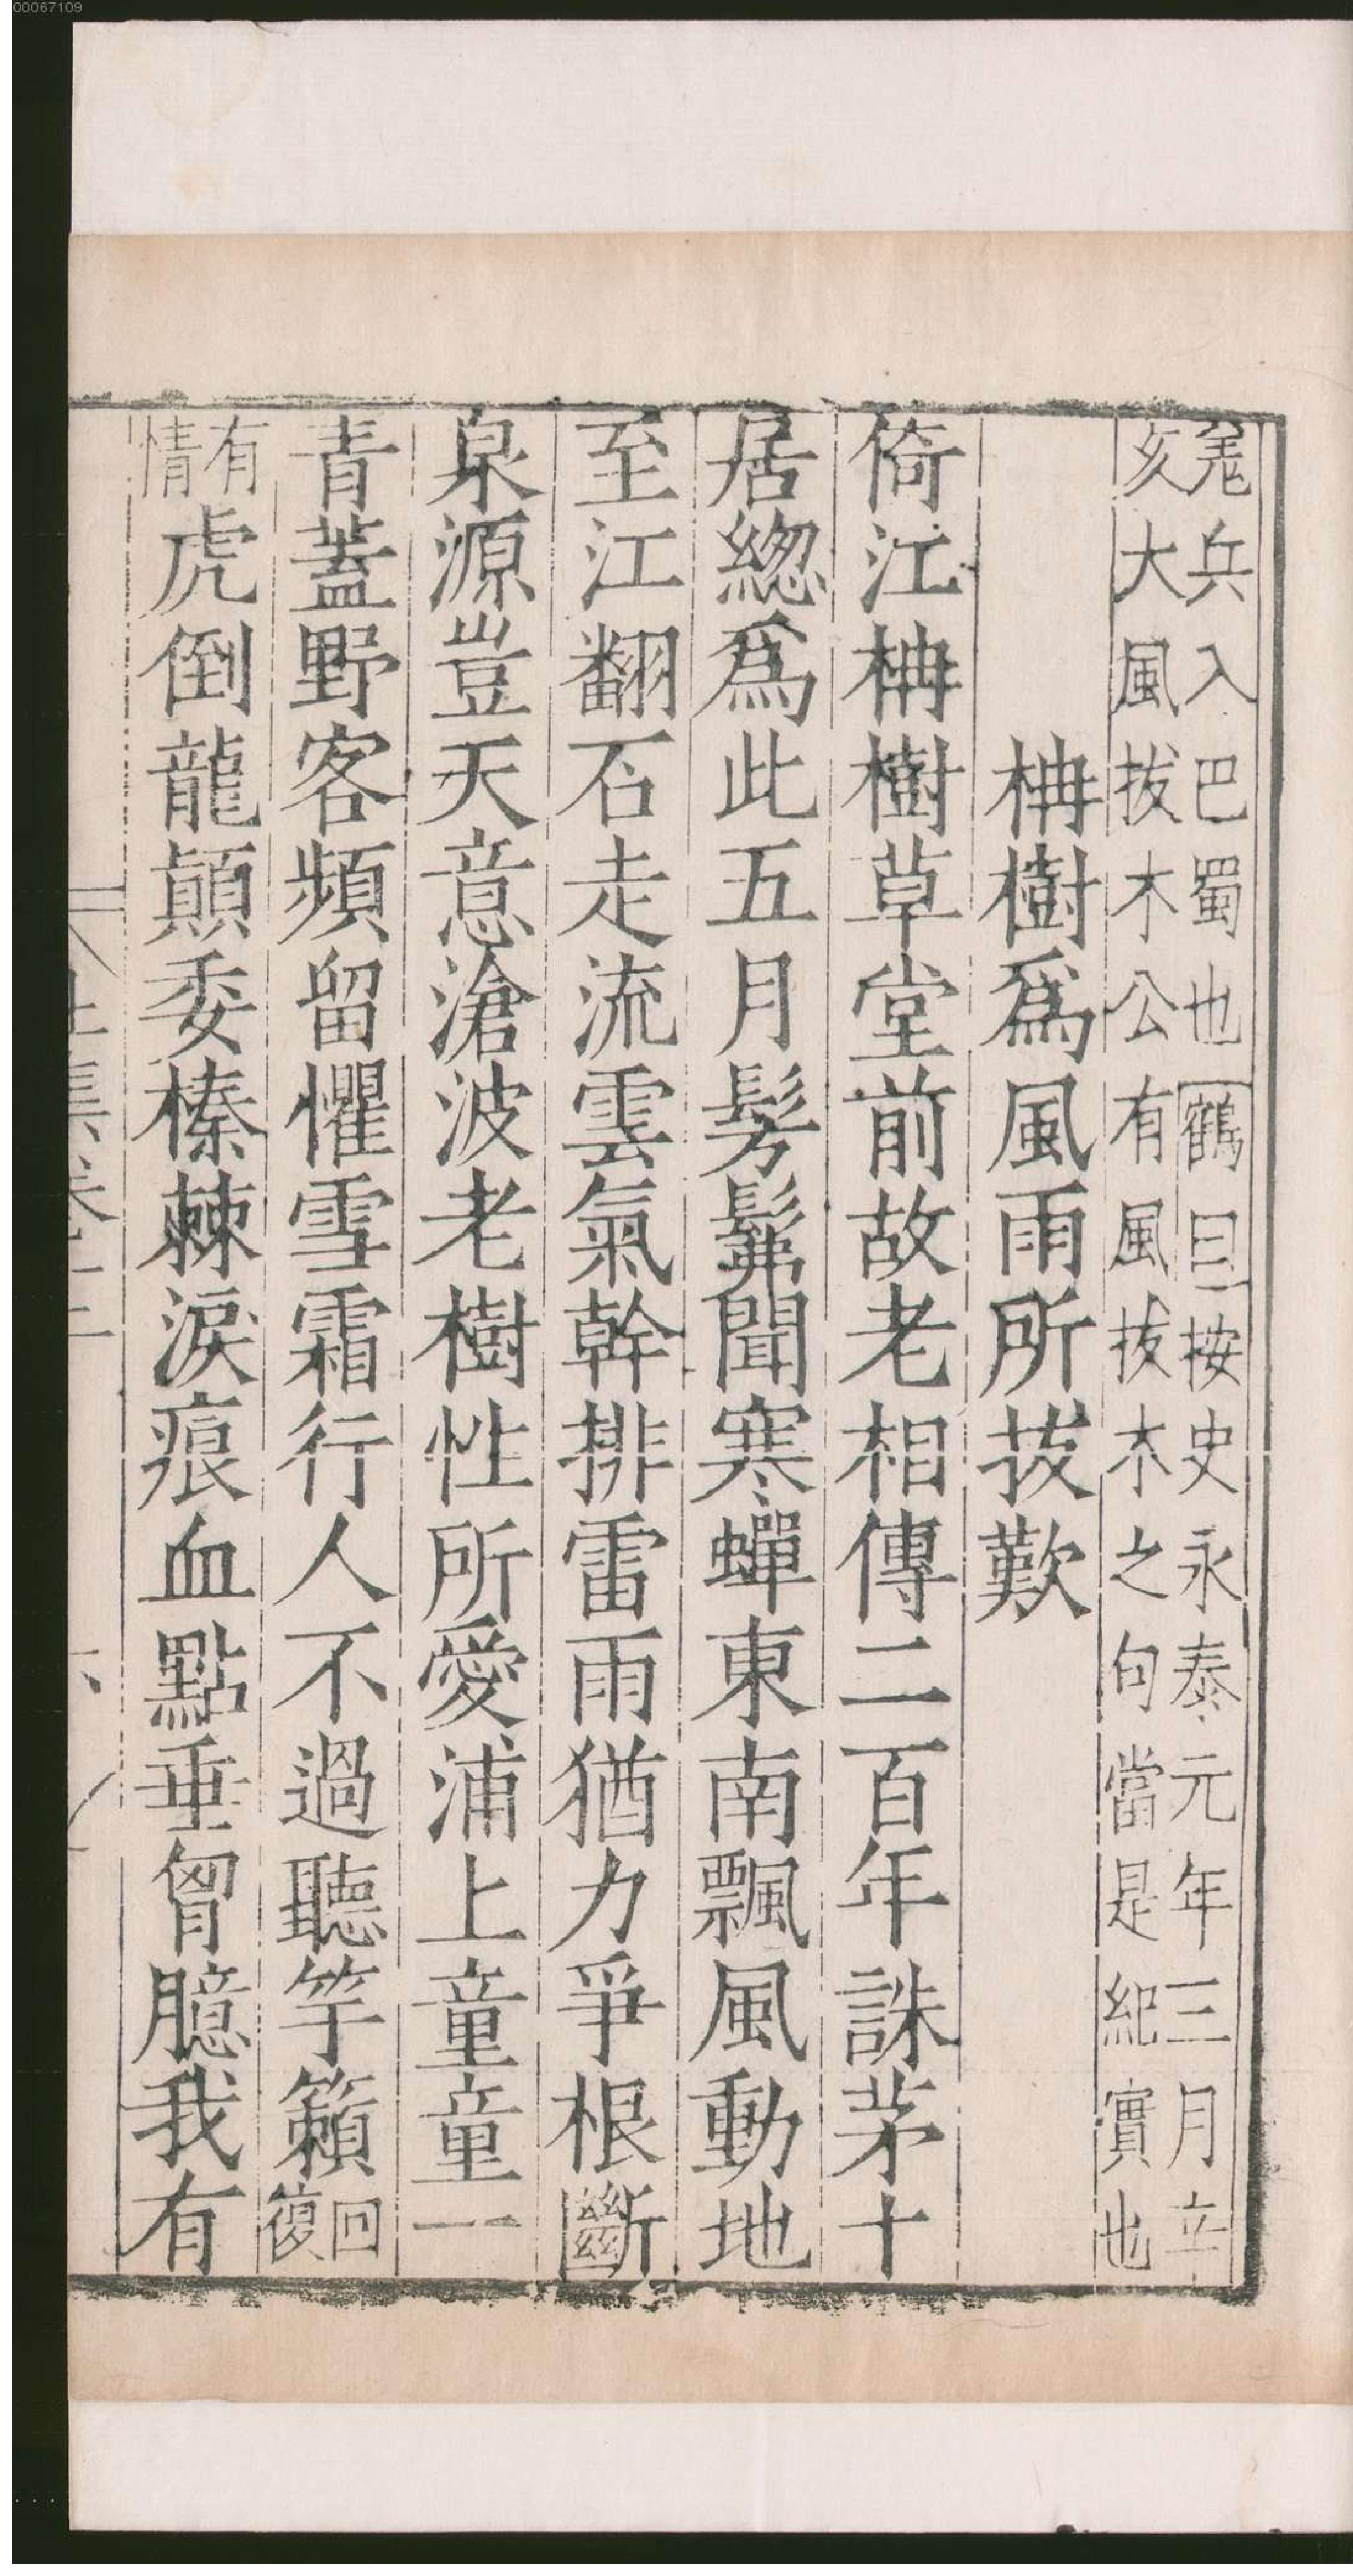 00067109
羗兵入巴蜀也鶴曰按史永泰元年三月辛
亥大風拔木公有風拔木之句當是紀實也
柟樹爲風雨所拔歎
倚江柟樹草堂前故老相傳二百年誅茅十
居緫爲此五月髣髴聞寒蟬東南飄風動地
至江翻石走流雲氣幹排雷雨猶力爭根斷
泉源豈天意滄波老樹性所愛浦上童童一
青蓋野客頻留懼雪霜行人不過聽竽籟回復
有情虎倒龍顛委榛棘淚痕血點垂胷臆我有
杜集卷十二
六